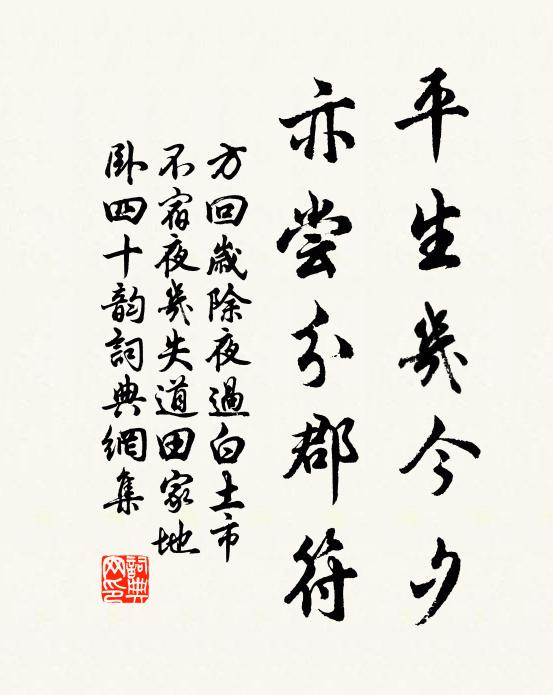 平生幾今夕
亦尝分郡符
方回歳除夜過白土市
不宿夜幾失道田家地
卧四十韵詞典網集
詞典网印